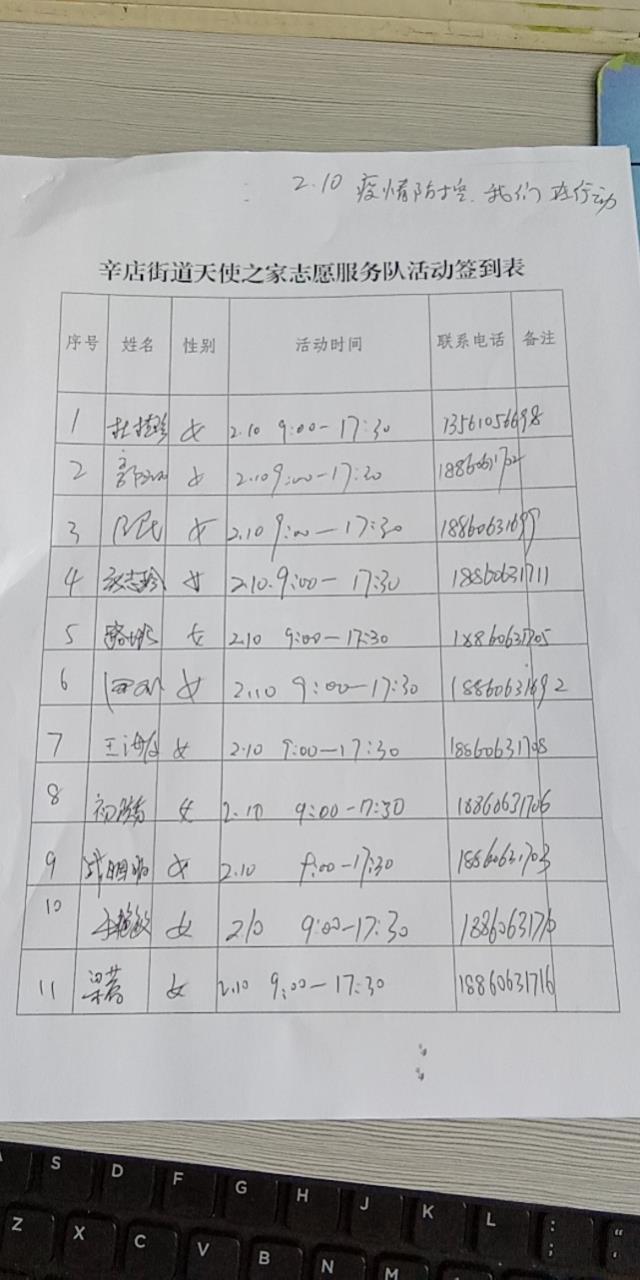 2.10 疫情防控.我们在行动
辛店街道天使之家志愿服务队活动签到表
序号 姓名 性别 活动时间 联系电话 备注
1 女 2.10 9:00-17:30 13561056698
2 女 2.10 9:00-17:30 18860631702
3 女 2.10 9:00-17:30 18860631699
4 女 2.10.9:00-17:30 18860631711
5 女 2.10 9:00-17:30 18860631705
6 女 2.10 9:00-17:30 18860631692
7 女 2.10 9:00-17:30 18860631708
8 女 2.10 9:00-17:30 18860631706
9 女 2.10 9:00-17:30 18860631703
10 女 2.10 9:00-17:30
11 梁蓉 女 2.10 9:00-17:30 18860631716
A S D F G H J K L : ; "
Z X C V B N M